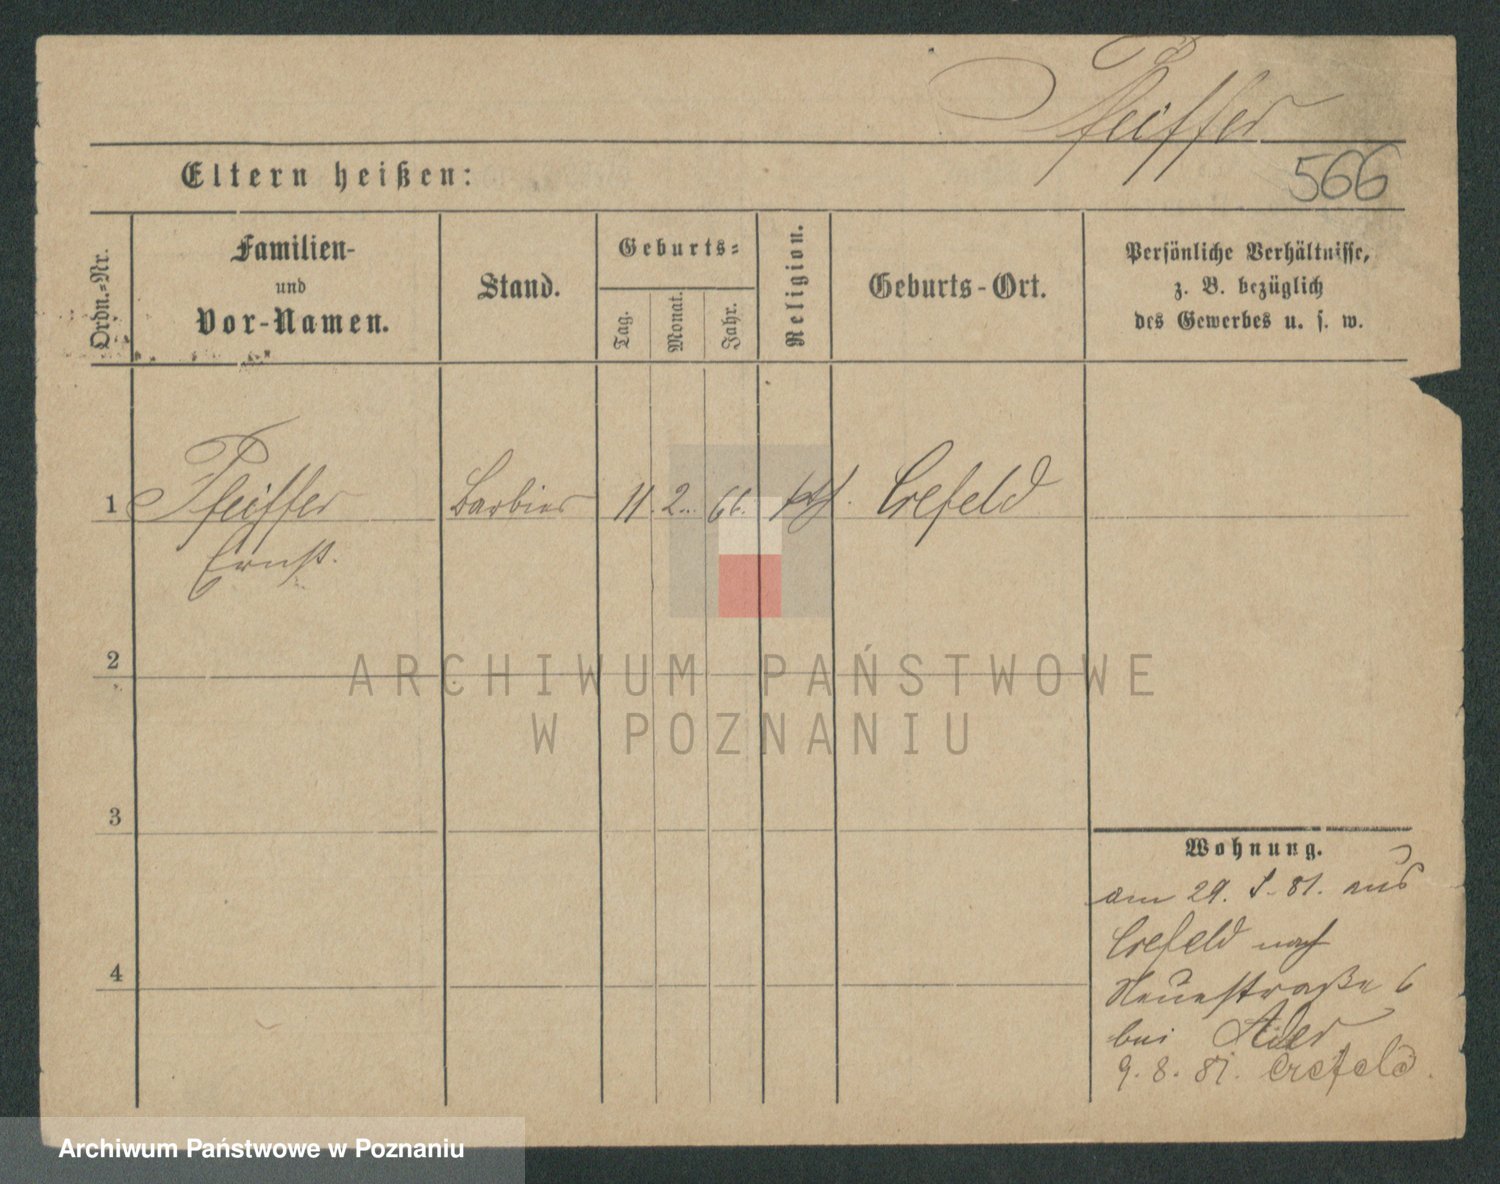 Pfeiffer
Eltern heißen:
566
Ordn.-Nr.
Familien-
und
Vor-Namen.
Stand.
Geburts-
Tag.
Monat.
Jahr.
Religion.
Geburts-Ort.
Persönliche Verhältnisse,
z. B. bezüglich
des Gewerbes u. s. w.
1 Pfeiffer Barbier 11. 2. 66. Crefeld
Ernst.
2
3
4
ARCHIWUM PAŃSTWOWE
W POZNANIU
Wohnung.
am 29. 81. aus
Crefeld nach
Neuestraße 6
bei Adler
9. 8. 81. Crefeld.
Archiwum Państwowe w Poznaniu